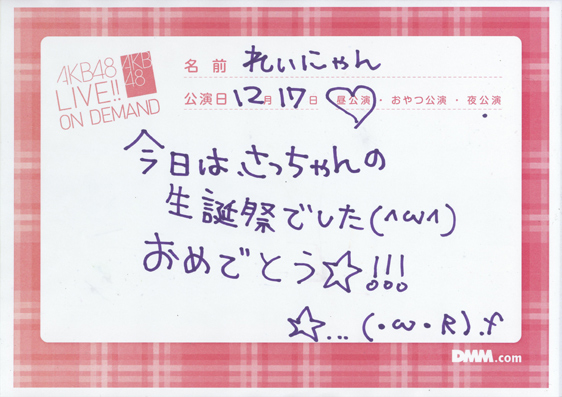 AKB48
LIVE!!
ON DEMAND
AKB
48
名前 れいにゃん
公演日 12月17日 昼公演・おやつ公演・夜公演
今日はさっちゃんの
生誕祭でした(^ω^)
おめでとう☆!!!
☆...(・ω・R).f
DMM.com